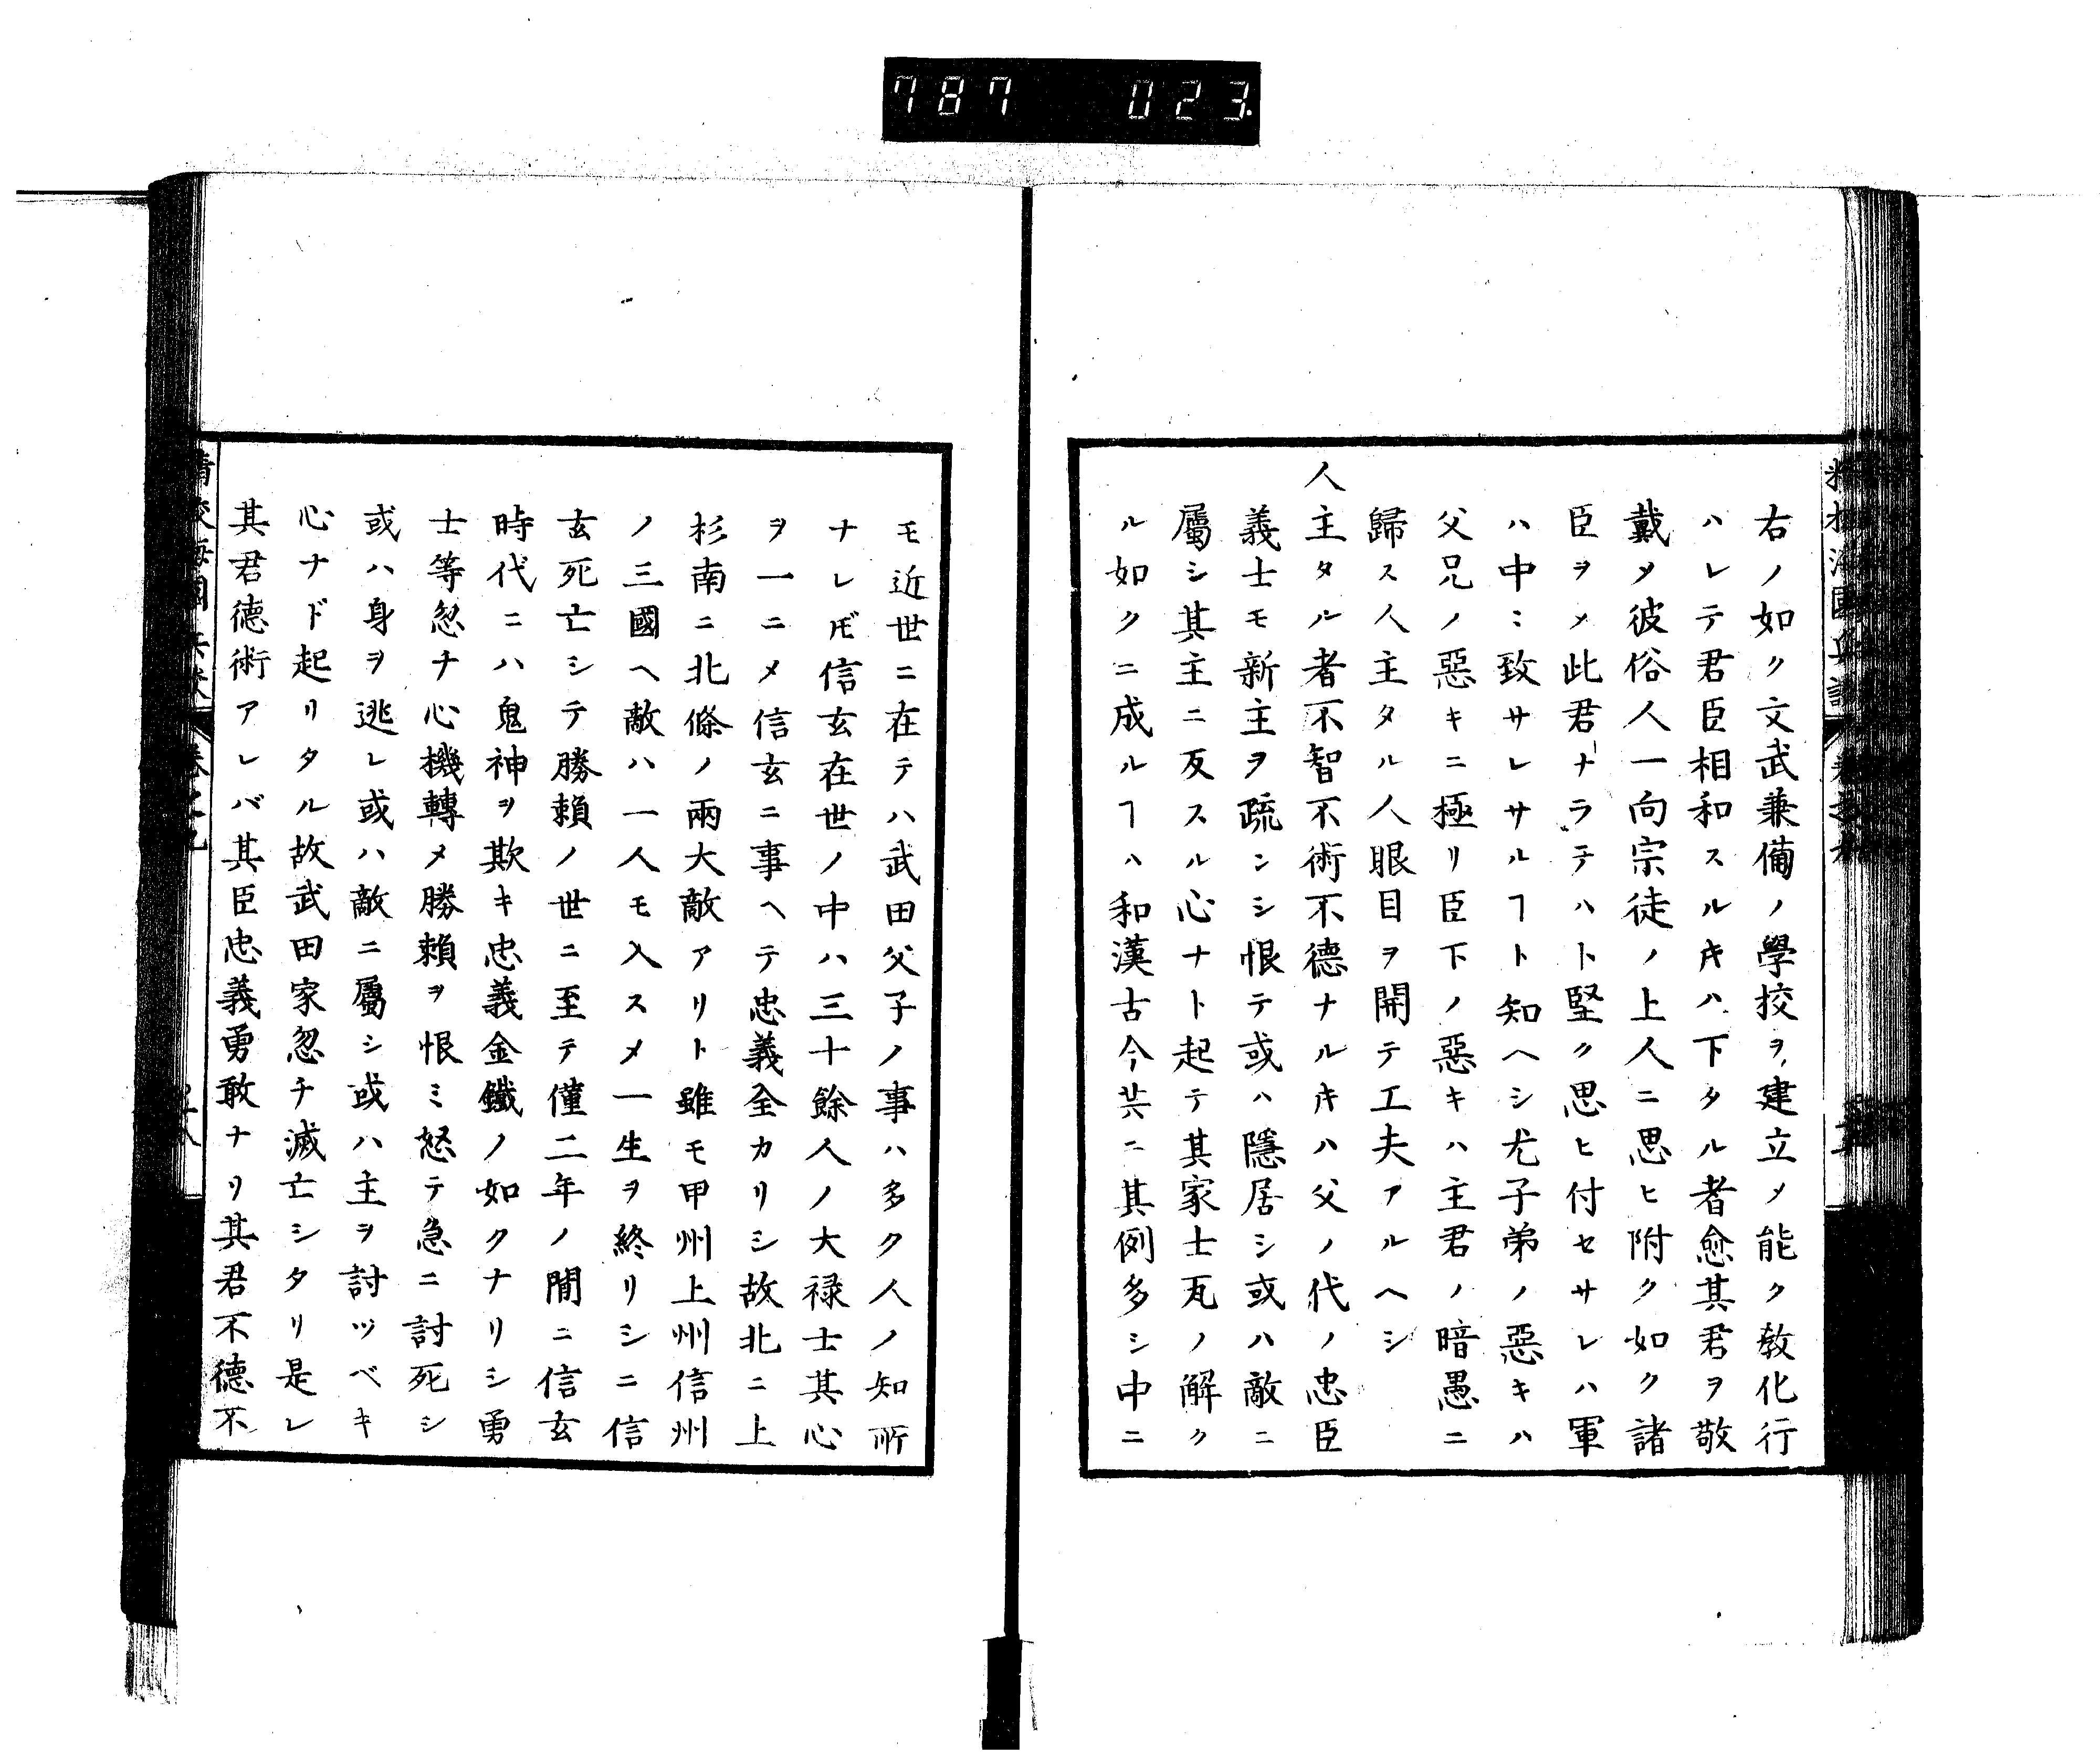 787 023
右ノ如ク文武兼備ノ學挍ヲ建立メ能ク敎化行
ハレテ君臣相和スルキハ下タル者愈其君ヲ敬
戴メ彼俗人一向宗徒ノ上人ニ思ヒ附ク如ク諸
臣ヲメ此君ナラテハト堅ク思ヒ付セサレハ軍
ハ中〻致サレサルヿト知ヘシ尤子弟ノ惡キハ
父兄ノ惡キニ極リ臣下ノ惡キハ主君ノ暗愚ニ
歸ス人主タル人眼目ヲ開テ工夫アルヘシ
人主タル者不智不術不德ナルキハ父ノ代ノ忠臣
義士モ新主ヲ疏ンシ恨テ或ハ隱居シ或ハ敵ニ
屬シ其主ニ反スル心ナト起テ其家士瓦ノ解ク
ル如クニ成ルヿハ和漢古今共ニ其例多シ中ニ
モ近世ニ在テハ武田父子ノ事ハ多ク人ノ知所
ナレ𪜈信玄在世ノ中ハ三十餘人ノ大禄士其心
ヲ一ニメ信玄ニ事ヘテ忠義全カリシ故北ニ上
杉南ニ北條ノ兩大敵アリト雖モ甲州上州信州
ノ三國ヘ敵ハ一人モ入スメ一生ヲ終リシニ信
玄死亡シテ勝賴ノ世ニ至テ僅二年ノ間ニ信玄
時代ニハ鬼神ヲ欺キ忠義金鐵ノ如クナリシ勇
士等忽チ心機轉メ勝賴ヲ恨ミ怒テ急ニ討死シ
或ハ身ヲ逃レ或ハ敵ニ屬シ或ハ主ヲ討ツベキ
心ナド起リタル故武田家忽チ滅亡シタリ是レ
其君德術アレバ其臣忠義勇敢ナリ其君不德不